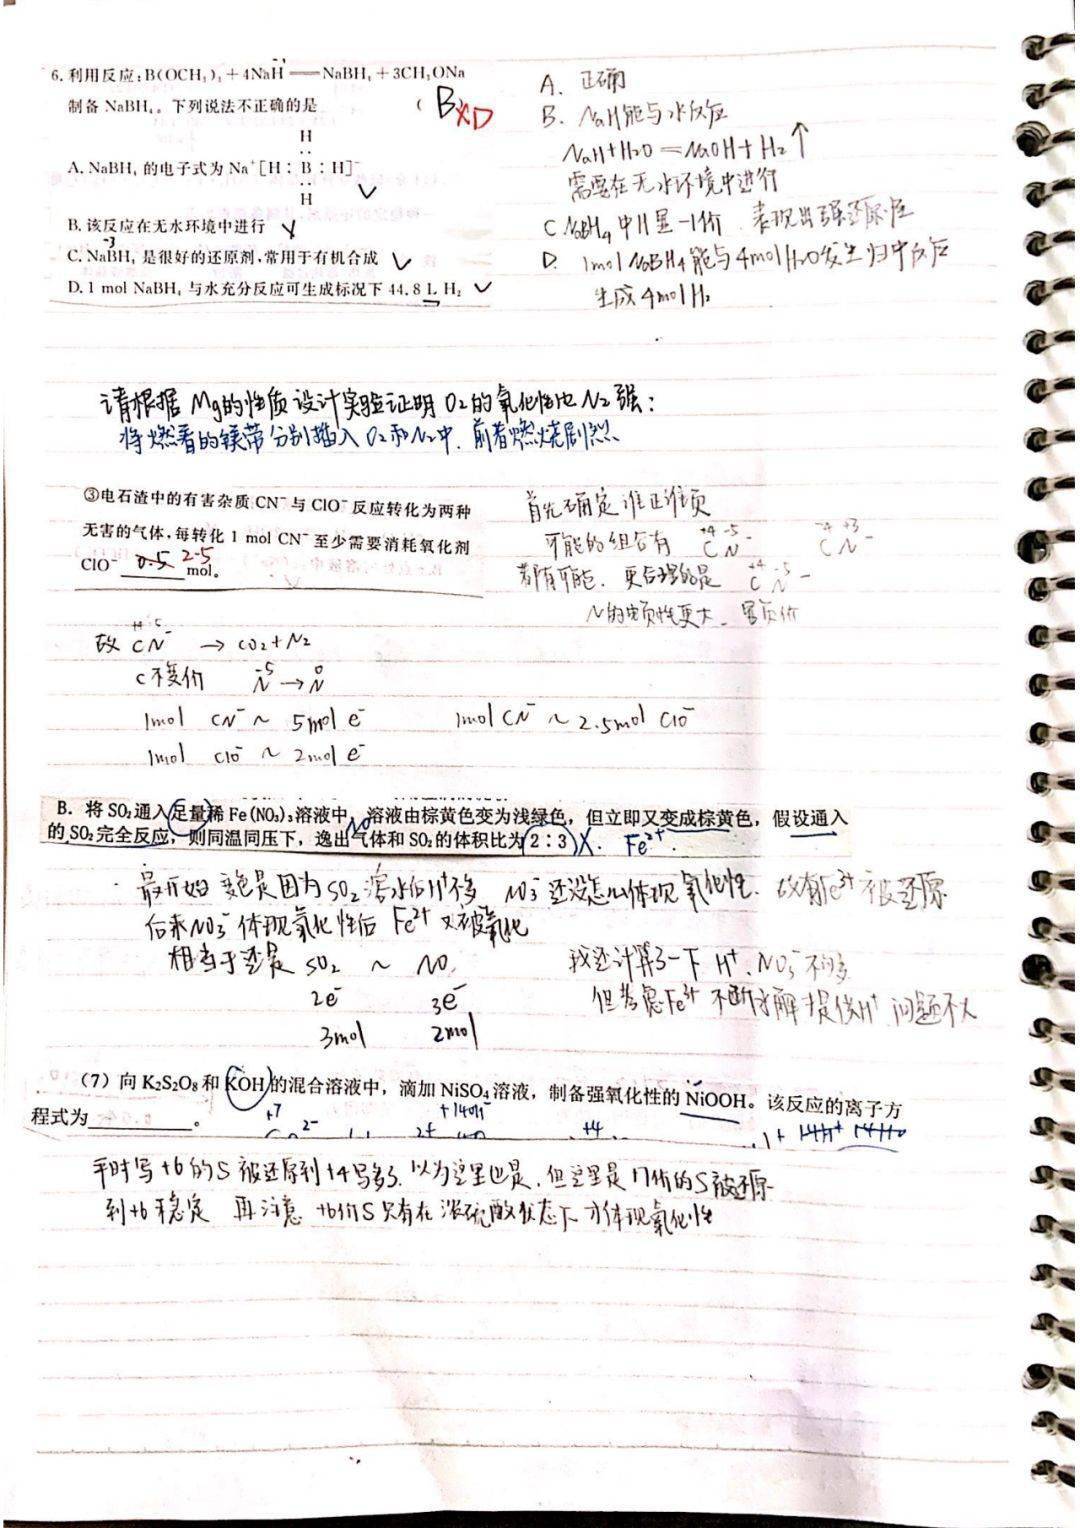 6. 利用反应:B(OCH₃)₃+4NaH══NaBH₄+3CH₃ONa
制备 NaBH₄。下列说法不正确的是 ( B ×D
H
A. NaBH₄ 的电子式为 Na⁺[H:B:H]⁻ √
H
B. 该反应在无水环境中进行 √
C. NaBH₄ 是很好的还原剂,常用于有机合成 √
D. 1 mol NaBH₄ 与水充分反应可生成标况下 44.8 L H₂ √
A. 正确
B. NaH能与水反应
NaH+H₂O=NaOH+H₂↑
需要在无水环境中进行
C NaBH₄中H显-1价 表现出强还原性
D. 1mol NaBH₄能与4mol H₂O发生归中反应
生成4mol H₂
请根据Mg的性质设计实验证明O₂的氧化性比N₂强:
将燃着的镁带分别插入O₂和N₂中,前者燃烧剧烈
③电石渣中的有害杂质 CN⁻ 与 ClO⁻ 反应转化为两种
无害的气体,每转化 1 mol CN⁻ 至少需要消耗氧化剂
ClO⁻ 0.5 2.5 mol。
首先确定谁正谁负
可能的组合有 +4 -5 CN⁻ -4 +3 CN⁻
都有可能. 更合理的是 +4 -5 CN⁻
N的电负性更大. 显负价
故 CN⁻ → CO₂+N₂
C不变价 -5 N → 0 N
1mol CN⁻ ~ 5mol e⁻ 1mol CN⁻ ~ 2.5mol ClO⁻
1mol ClO⁻ ~ 2mol e⁻
B. 将 SO₂ 通入足量稀 Fe(NO₃)₃ 溶液中,溶液由棕黄色变为浅绿色,但立即又变成棕黄色,假设通入
的 SO₂ 完全反应,则同温同压下,逸出气体和 SO₂ 的体积比为 2:3 ×. Fe²⁺.
最开始变色是因为SO₂溶水后H⁺不多 NO₃⁻还没怎么体现氧化性. 故有Fe³⁺被还原
后来NO₃⁻体现氧化性后 Fe²⁺又被氧化
相当于还是 SO₂ ~ NO.
2e⁻ 3e⁻
3mol 2mol
我还计算了一下 H⁺、NO₃⁻不够
但考虑Fe³⁺不断水解提供H⁺ 问题不大
(7)向 K₂S₂O₈ 和 KOH 的混合溶液中,滴加 NiSO₄ 溶液,制备强氧化性的 NiOOH。该反应的离子方
程式为 。
平时写+6的S被还原到+4写多了. 以为这里也是. 但这里是+7价的S被还原
到+6稳定 再注意 +6价S只有在浓硫酸状态下才体现氧化性